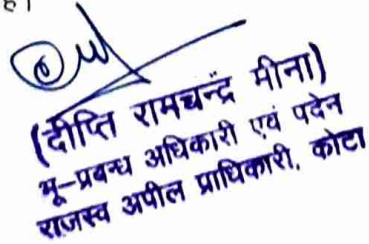 है।
(दीप्ति रामचन्द्र मीना)
भू-प्रबन्ध अधिकारी एवं पदेन
राजस्व अपील प्राधिकारी, कोटा